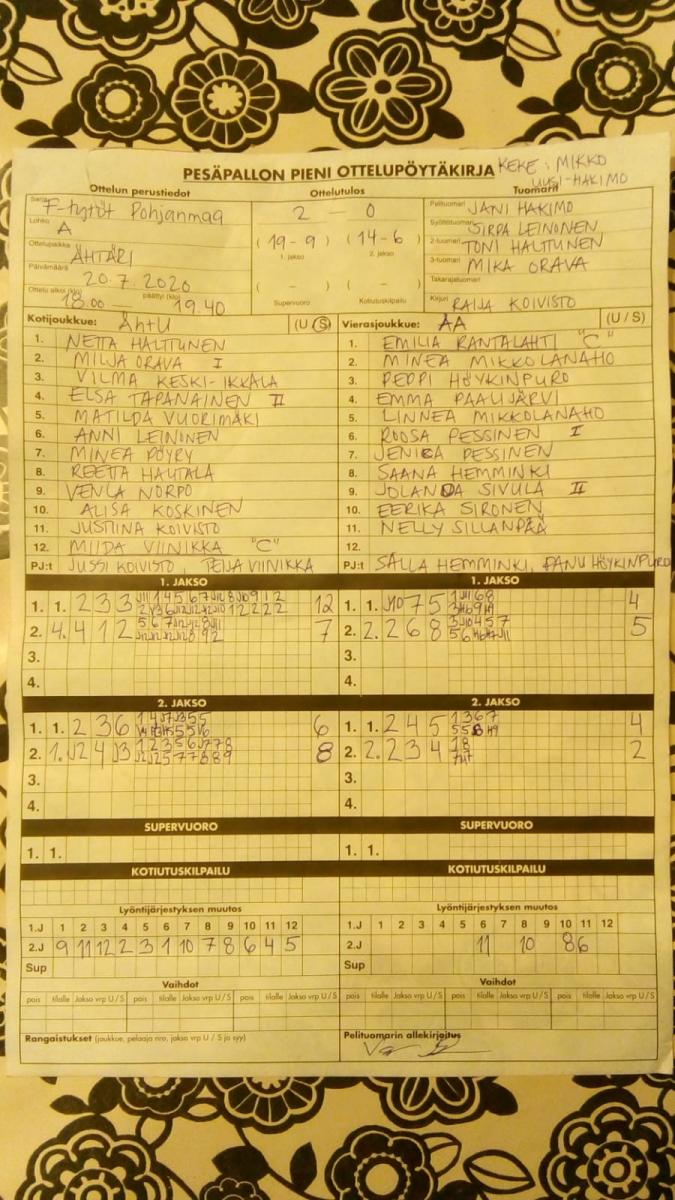 PESÄPALLON PIENI OTTELUPÖYTÄKIRJA
KEKE: MIKKO
UUSI-HAKIMO
Ottelun perustiedot
Ottelutulos
Tuomarit
Sarja F-tytöt Pohjanmaa
Lohko A
Ottelupaikka ÄHTÄRI
Päivämäärä 20.7.2020
Ottelu alkoi (klo) 18.00 — päättyi (klo) 19.40
2 — 0
(19-9) (14-6)
1. jakso 2. jakso
( – ) ( – )
Supervuoro Kotiutuskilpailu
Pelituomari JANI HAKIMO
Syöttötuomari SIRPA LEINONEN
2-tuomari TONI HALTTUNEN
3-tuomari MIKA ORAVA
Takarajatuomari
Kirjuri RAIJA KOIVISTO
Kotijoukkue: ÄhtU (U/S)
1. NETTA HALTTUNEN
2. MILJA ORAVA I
3. VILMA KESKI-IKKALA
4. ELSA TAPANAINEN II
5. MATILDA VUORIMÄKI
6. ANNI LEINONEN
7. MINEA PÖYRY
8. REETTA HAUTALA
9. VENLA NORPO
10. ALISA KOSKINEN
11. JUSTIINA KOIVISTO
12. MIIDA VIINIKKA "C"
PJ:t JUSSI KOIVISTO, TEIJA VIINIKKA
Vierasjoukkue: AA (U/S)
1. EMILIA RANTALAHTI "C"
2. MINEA MIKKOLANAHO
3. PEPPI HÖYKINPURO
4. EMMA PAALIJÄRVI
5. LINNEA MIKKOLANAHO
6. ROOSA PESSINEN I
7. JENICA PESSINEN
8. SAANA HEMMINKI
9. JOLANDA SIVULA II
10. EERIKA SIRONEN
11. NELLY SILLANPÄÄ
12.
PJ:t SALLA HEMMINKI, PANU HÖYKINPURO
1. JAKSO
1. 1. 2 3 3 12
2. 4. 4 1 2 7
3.
4.
1. JAKSO
1. 1. 7 5 4
2. 2. 2 6 8 5
3.
4.
2. JAKSO
1. 1. 2 3 6 6
2. 1. 4 8
3.
4.
2. JAKSO
1. 1. 2 4 5 4
2. 2. 2 3 4 2
3.
4.
SUPERVUORO
1. 1.
SUPERVUORO
1. 1.
KOTIUTUSKILPAILU
KOTIUTUSKILPAILU
Lyöntijärjestyksen muutos
1.J 1 2 3 4 5 6 7 8 9 10 11 12
2.J 9 11 12 2 3 1 10 7 8 6 4 5
Sup
Lyöntijärjestyksen muutos
1.J 1 2 3 4 5 6 7 8 9 10 11 12
2.J 11 10 8 6
Sup
Vaihdot
pois tilalle Jakso vrp U/S pois tilalle Jakso vrp U/S pois tilalle Jakso vrp U/S
Vaihdot
pois tilalle Jakso vrp U/S pois tilalle Jakso vrp U/S pois tilalle Jakso vrp U/S
Rangaistukset (joukkue, pelaaja nro, jakso vrp U/S ja syy)
Pelituomarin allekirjoitus